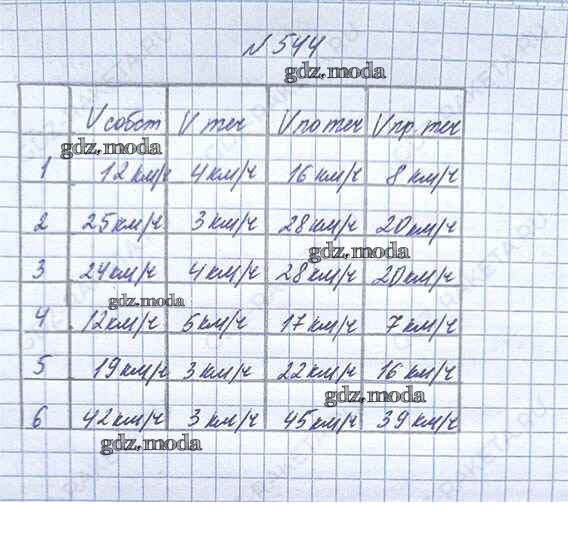 № 544
gdz.moda
V собст V теч V по теч V пр. теч
gdz.moda
1 12 км/ч 4 км/ч 16 км/ч 8 км/ч
2 25 км/ч 3 км/ч 28 км/ч 20 км/ч
gdz.moda
3 24 км/ч 4 км/ч 28 км/ч 20 км/ч
gdz.moda
4 12 км/ч 6 км/ч 17 км/ч 7 км/ч
5 19 км/ч 3 км/ч 22 км/ч 16 км/ч
gdz.moda
6 42 км/ч 3 км/ч 45 км/ч 39 км/ч
gdz.moda